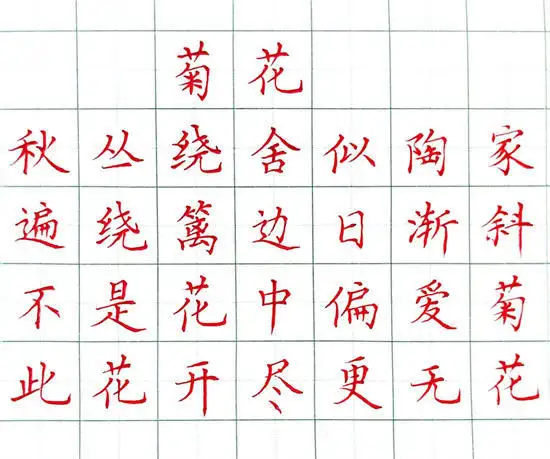 菊花
秋丛绕舍似陶家
遍绕篱边日渐斜
不是花中偏爱菊
此花开尽更无花